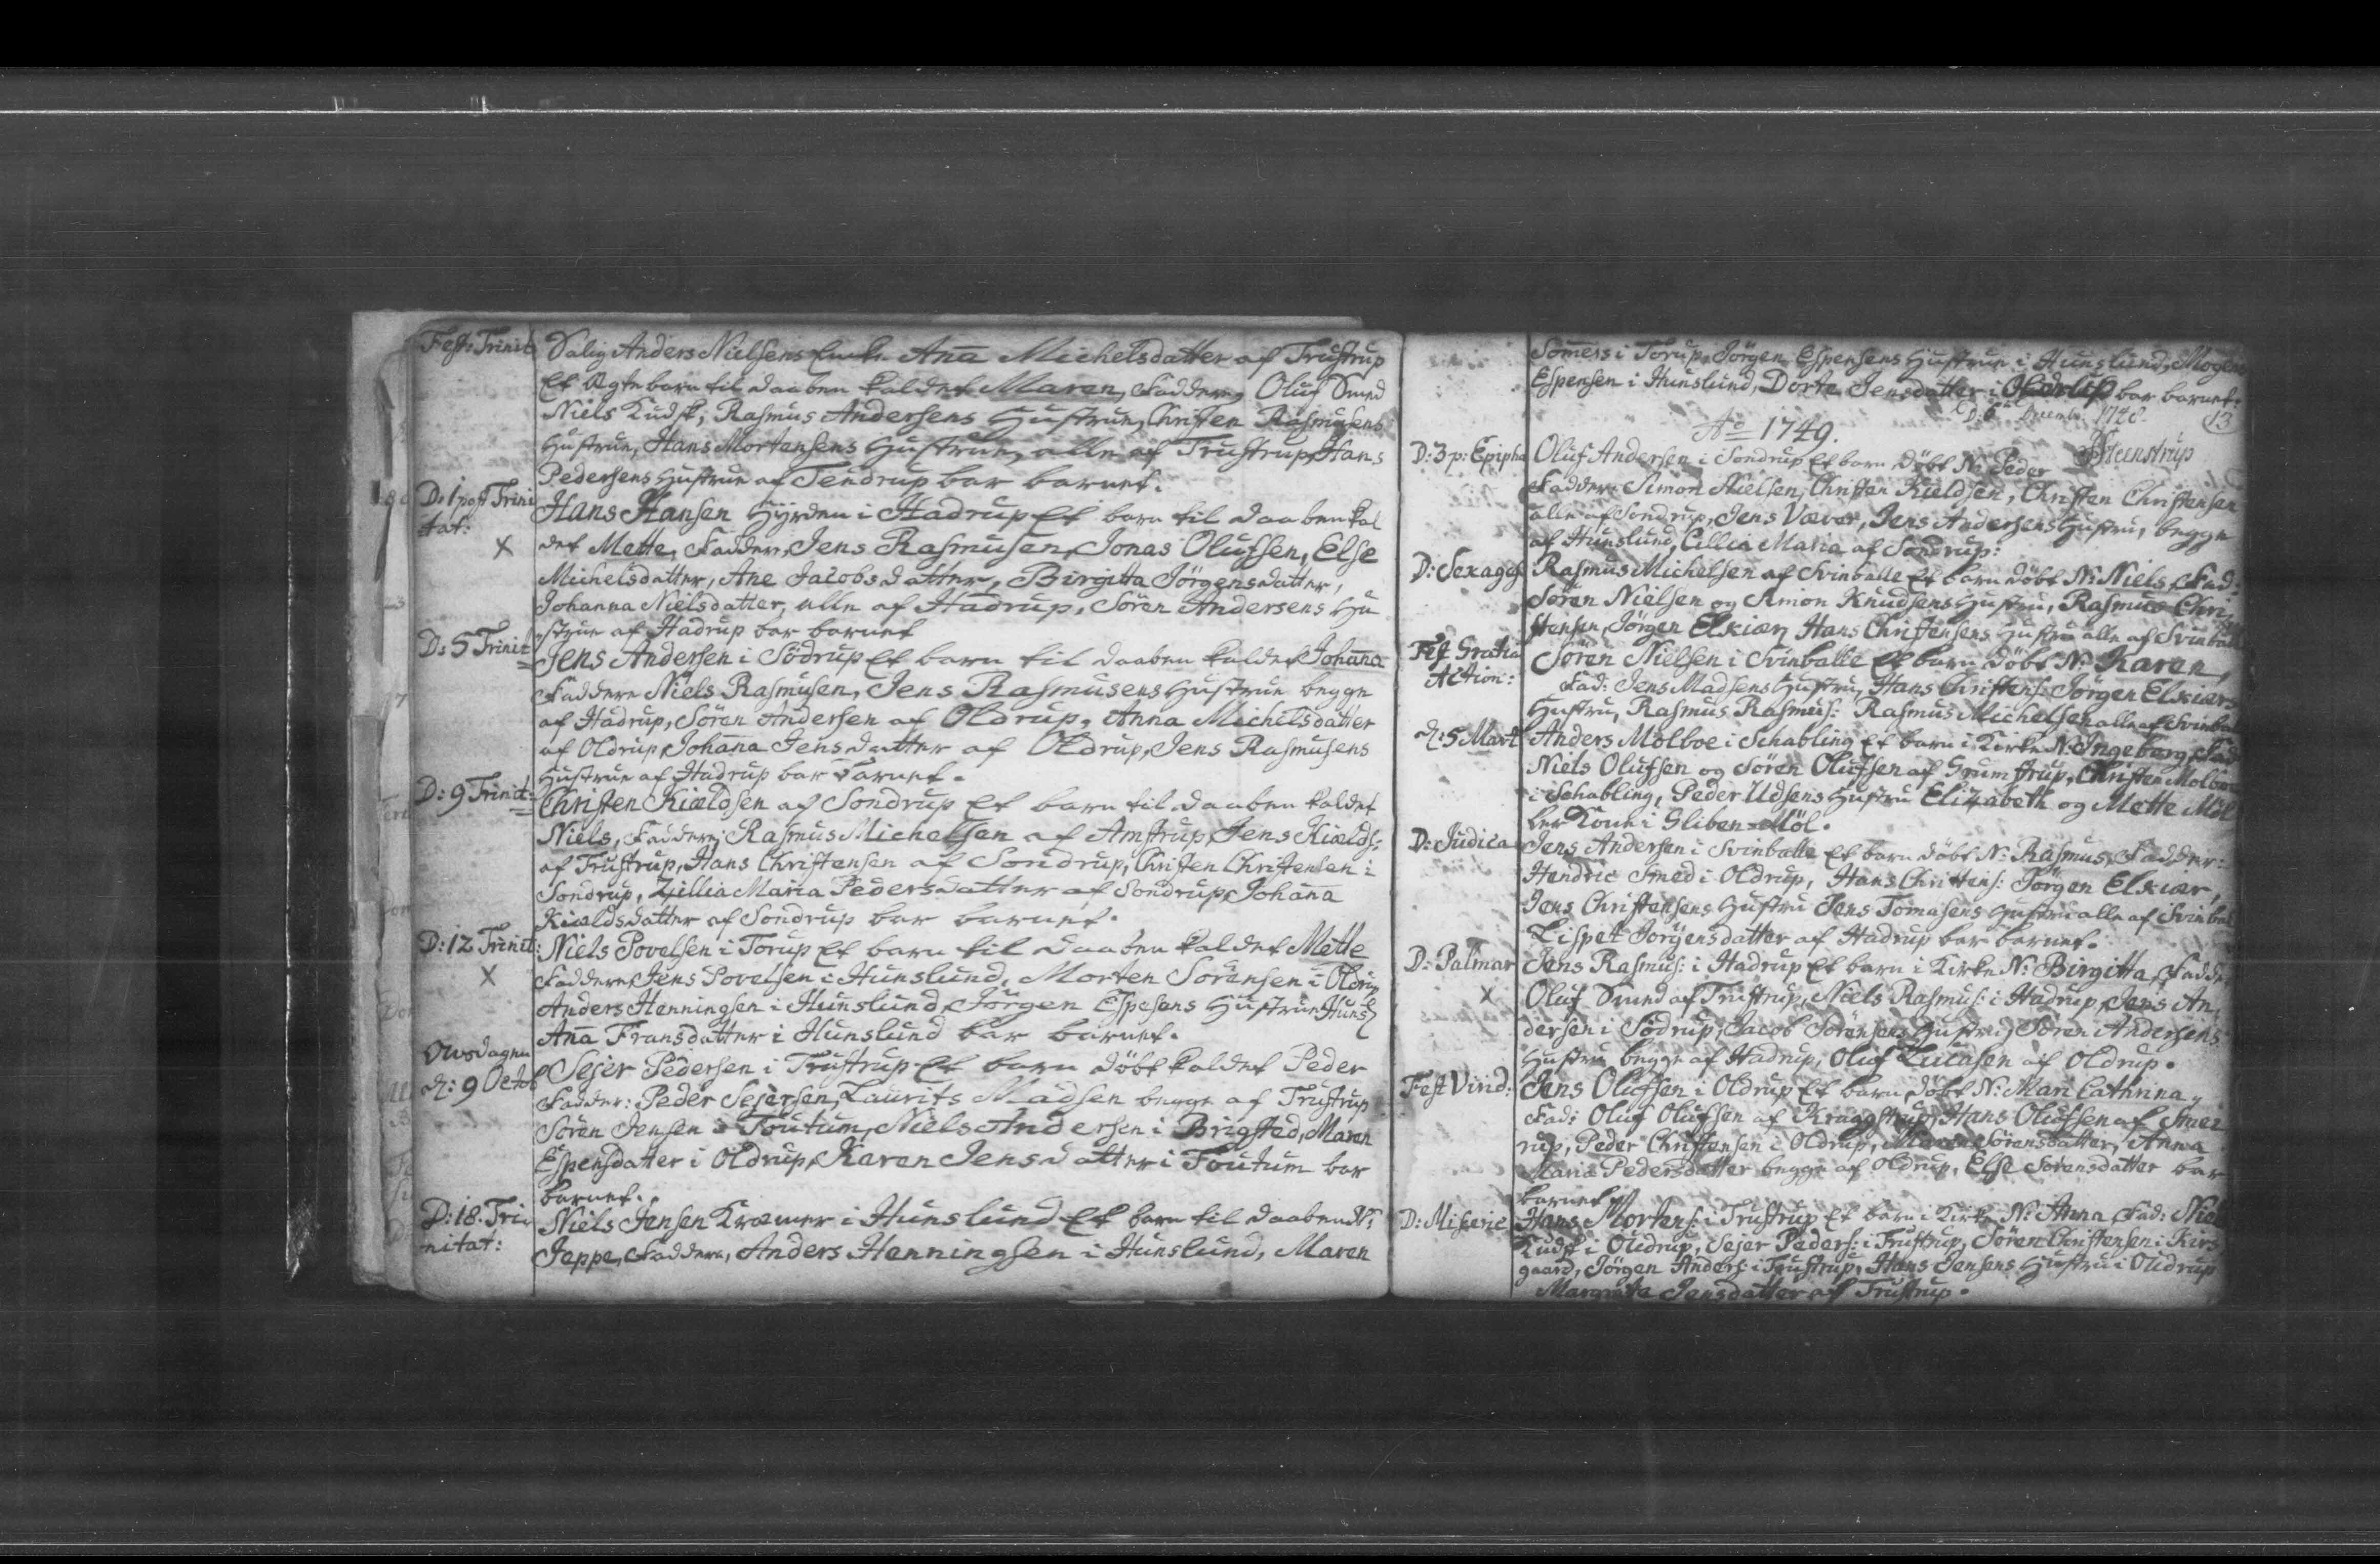 Fest: Trinit: Salig Anders Nielsens Enke Aña Michelsdatter af Trustrup
Et Ægte barn til daaben kaldet Maren, Faddere, Oluf Smed
Niels Kudsk, Rasmus Andersens Hustrue, Christen Rasmusens
Hustrue, Hans Mortensens Hustrue, alle af Trustrup, Hans
Pedersens Hustrue af Tendrup bar barnet.
D: 1 post Trini Hans Hansen Hyrden i Hadrup Et barn til daaben kal
tat: X det Mette, Faddere, Jens Rasmusen, Jonas Olufsen, Else
Michelsdatter, Ane Jacobsdatter, Birgitta Jörgensdatter,
Johanna Nielsdatter, alle af Hadrup, Sören Andersens Hu
strue af Hadrup bar barnet
D: 5 Trinit: Jens Andersen i Södrup Et barn til daaben kaldet Johaña
Faddere Niels Rasmusen, Jens Rasmusens Hustrue begge
af Hadrup, Sören Andersen af Oldrup, Anna Michelsdatter
af Oldrup, Johaña Jensdatter af Oldrup, Jens Rasmusens
Hustrue af Hadrup bar barnet.
D: 9 Trinit: Christen Kiældsen af Sondrup Et barn til daaben kaldet
Niels, Faddere, Rasmus Michelsen af Amstrup, Jens Kiælds:
af Trustrup, Hans Christensen af Sondrup, Christen Christensen i
Sondrup, Zillia Maria Pedersdatter af Sondrup, Johaña
Kiældsdatter af Sondrup bar barnet.
D: 12 Trinit: Niels Povelsen i Torup Et barn til daaben kaldet Mette
X Faddere, Jens Povelsen i Hunslund, Morten Sörensen i Oldrup
Anders Henningsen i Hunslund, Jörgen Espesens Hustrue Hunsl
Aña Fransdatter i Hunslund bar barnet.
Onsdagen Sejer Pedersen i Trustrup Et barn döbt kaldet Peder
d: 9 Octob Fadder: Peder Sejersen, Laurits Madsen begge af Trustrup
Sören Jensen i Toutum, Niels Andersen i Brigsted, Maren
Espensdatter i Oldrup, Karen Jensdatter i Toutum bar
barnet.
D: 18. Tri Niels Jensen Kræmer i Hunslund Et barn til daaben N:
nitat: Jeppe, Faddere, Anders Henningsen i Hunslund, Maren
Somers i Torup, Jörgen Espensens Hustrue i Hunslund, Mogens
Espensen i Hunslund, Dorte Jensdatter i bar barnet.
D: 6 Decembr 1748. 13
Ao 1749. Steenstrup
D: 3 p: Epipha Oluf Andersen i Sondrup Et barn döbt N: Peder
Faddere Simon Nielsen, Christen Kieldsen, Christen Christensen
alle af Sondrup, Jens Væver, Jens Andersens Hustru, begge
af Hunslund, Cillia Maria af Sondrup:
D: Sexages Rasmus Michelsen af Svinballe Et barn döbt N: Niels, Fad:
Sören Nielsen og Simon Knudsens Hustru, Rasmus Chri
stensen, Jörgen Elkiær, Hans Christensens Hustru alle af Svinballe
Fest Gratia Sören Nielsen i Svinballe Et barn döbt N: Karen,
Action: Fad: Jens Madsens Hustru, Hans Christens: Jörgen Elkiærs
Hustru, Rasmus Rasmus: Rasmus Michelsen alle af Svinbal
d: 5 Mart Anders Molboe i Schabling Et barn i Kirke N: Ingeborg, Fad
Niels Olufsen og Sören Olufsen af Grumstrup, Christen Molboe
i Schabling, Peder Udsens Hustru Elizabeth og Mette Möl
ler Kone i Gliben-Möl.
D: Judica Jens Andersen i Svinballe Et barn döbt N: Rasmus, Fadder:
Hendric Smed i Oldrup, Hans Christens: Jörgen Elkiær,
Jens Christensens Hustru Jens Tomasens Hustru alle af Svinbal
Lispet Jorgensdatter af Hadrup bar barnet.
D: Palmar Jens Rasmus: i Hadrup Et barn i Kirke N: Birgitta, Fadde
X Oluf Smed af Trustrup, Niels Rasmus: i Hadrup, Jens An
dersen i Södrup, Jacob Sörensens Hustru, Sören Andersens
Hustru begge af Hadrup, Oluf Lucasen af Oldrup.
Fest Virid: Jens Olufsen i Oldrup Et barn döbt N: Mari Cathrina,
Fad: Oluf Olufsen af Kragstrup, Hans Olufsen af
rup, Peder Christensen i Oldrup, Maren Sörensdatter, Anna
Maria Pedersdatter begge af Oldrup, Else Sörensdatter bar
barnet
D: Miseric Hans Mortens: i Trustrup Et barn i Kirke N: Anna, Fad: Niels
Kudsk i Oudrup, Sejer Peders: i Trustrup, Sören Christensen i Kirs
gaard, Jörgen Anders: i Trustrup, Hans Jensens Hustru i Oudrup
Margrete Jensdatter af Trustrup.